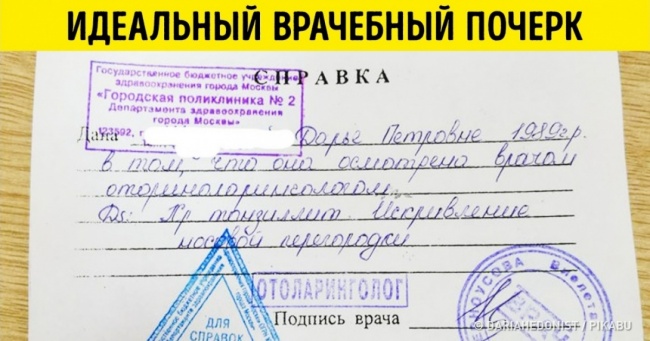 ИДЕАЛЬНЫЙ ВРАЧЕБНЫЙ ПОЧЕРК
СПРАВКА
Государственное бюджетное учреждение
здравоохранения города Москвы
«Городская поликлиника № 2
Департамента здравоохранения
города Москвы»
Дана Дарье Петровне 1989г.р.
в том, что она осмотрена врачом
оториноларингологом.
Ds: Хр тонзиллит. Искривление
носовой перегородки
ОТОЛАРИНГОЛОГ
Подпись врача
ДЛЯ
СПРАВОК
ВРАЧ
© DARIAHEDONIST / PIKABU